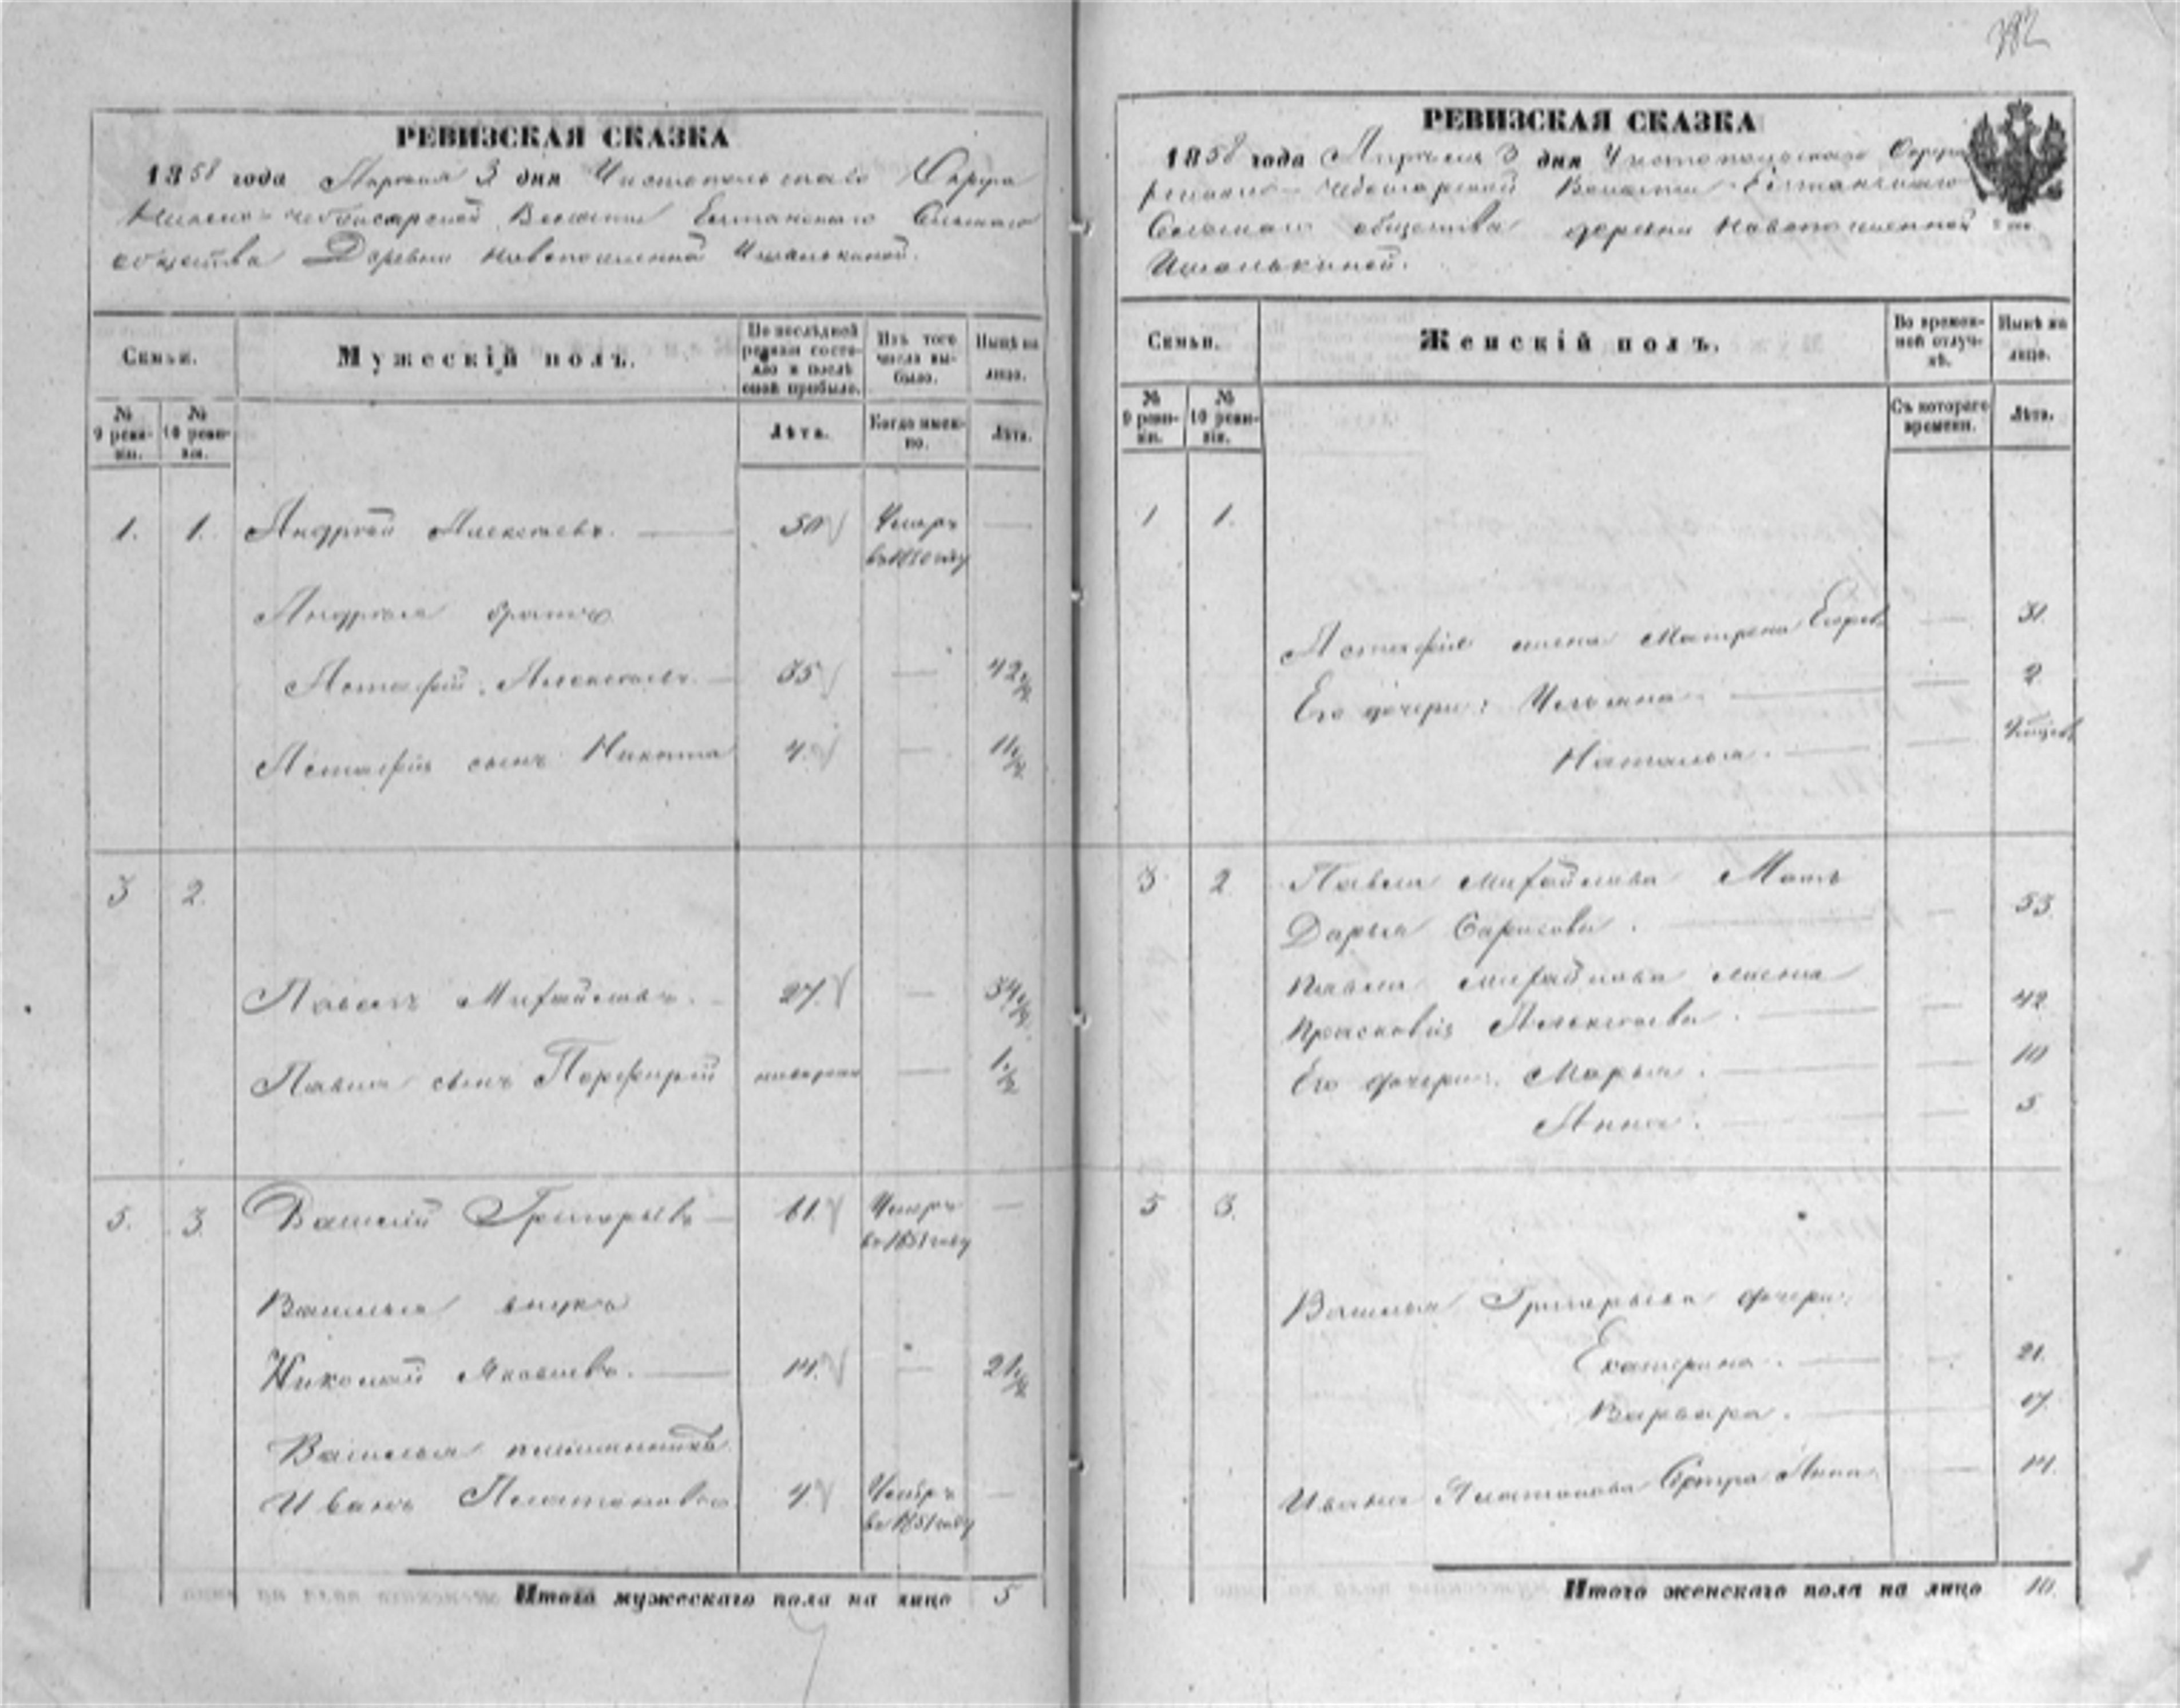 РЕВИЗСКАЯ СКАЗКА
1858 года Апреля 3 дня Чистопольскаго Округа
Волости Сельскаго
общества Деревни Новопошенной Ишалькиной.
Семьи.
Мужескій полъ.
По послѣдней ревизіи состояло и послѣ оной прибыло.
Изъ того числа выбыло.
Нынѣ на лицо.
№ 9 ревизіи.
№ 10 ревизіи.
Лѣта.
Когда именно.
Лѣта.
1. 1. Андрей Алексеевъ. 50 Умеръ
въ году
Андрея братъ
Астафій Алексеевъ 35 42
Астафія сынъ Никита 4. 11
3 2.
Павелъ Михайловъ. 27. 34
Павла сынъ Порфирій новорож 1
5. 3. Василій Григорьевъ 61. Умеръ
въ 1851 году
Василья внукъ
Николай Яковлевъ. 14. 21
Василья племянникъ
Иванъ Платоновъ 4. Умеръ
въ 1851 году
Итого мужескаго пола на лицо 5
РЕВИЗСКАЯ СКАЗКА
1858 года Апреля 3 дня Чистопольскаго Округа
Волости
Сельскаго общества деревни Новопошенной
Ишалькиной.
Семьи.
Женскій полъ.
Во временной отлучкѣ.
Нынѣ на лицо.
№ 9 ревизіи.
№ 10 ревизіи.
Съ котораго времени.
Лѣта.
1 1.
Астафія жена Матрена Егоров 31.
Его дочери: Ульяна 2
Наталья.
3 2. Павла Михайлова Мать
Дарья 53
Павла Михайлова жена
Прасковія Алексеева. 42
Его дочери: Марья. 10
Анна. 5
5 3.
Василья Григорьева дочери:
Екатерина. 21.
Варвара. 17
Ивана Платонова Сестра Анна 14.
Итого женскаго пола на лицо 10.